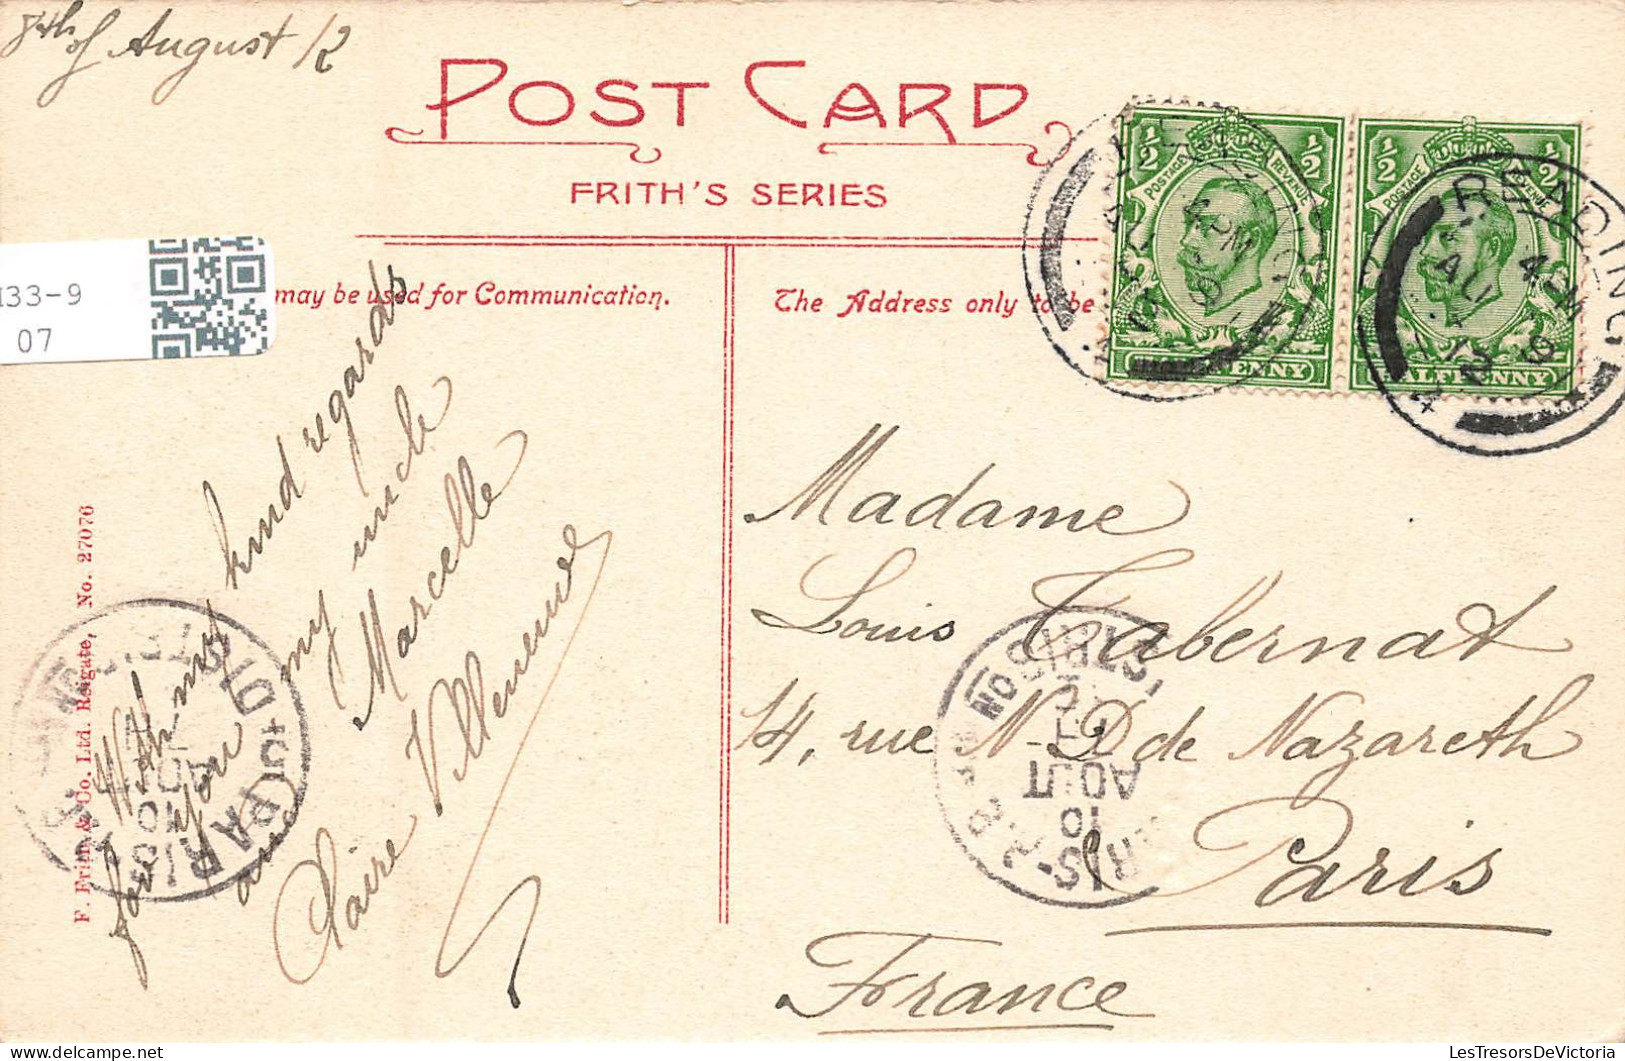 8th of August 12
POST CARD
FRITH'S SERIES
133-9
07
may be used for Communication.
The Address only to be
½ ½
POSTAGE REVENUE
HALFPENNY
½ ½
POSTAGE REVENUE
HALFPENNY
READING
4 PM
AU
12
With my kind regards
for you
and my uncle
Marcelle
Claire Villemene
Madame
Louis Tabernat
14, rue N-D de Nazareth
Paris
France
F. Frith & Co. Ltd. Reigate, No. 27076
PARIS
DISTRIBUTION
10
AOUT
LesTresorsDeVictoria